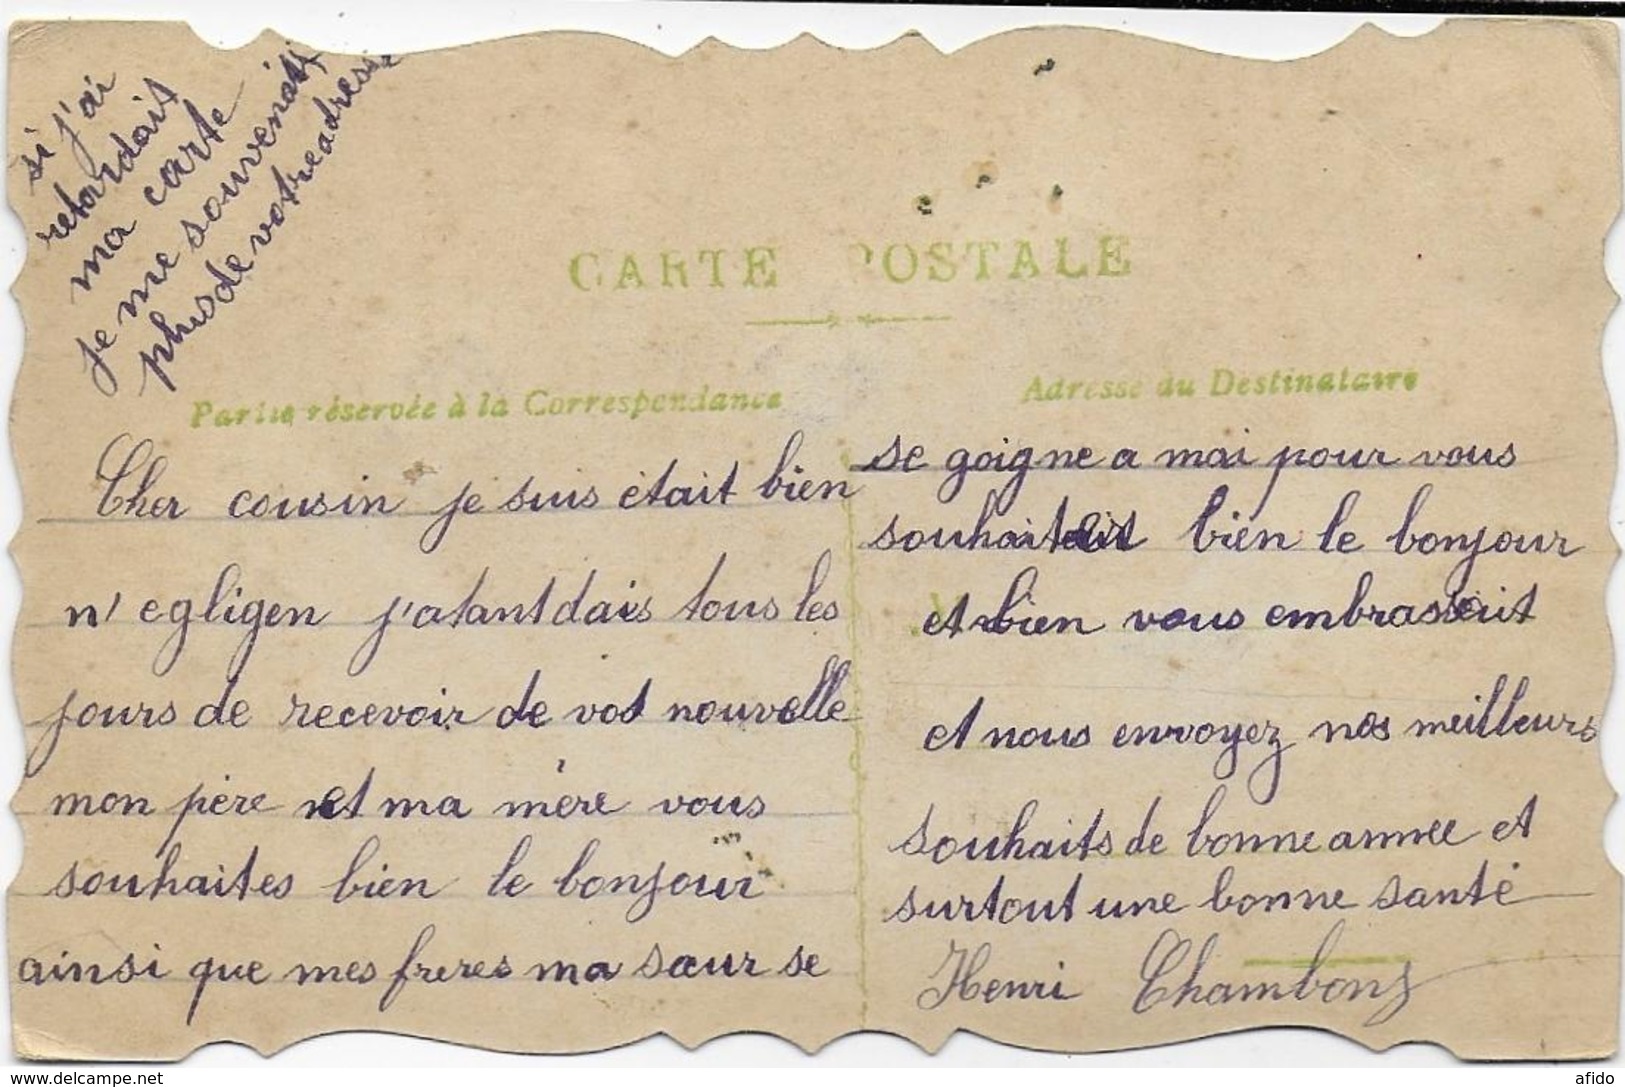 si j'ai
retardait
ma carte
je me souvenait
plus de votre adresse
CARTE POSTALE
Partie réservée à la Correspondance
Adresse du Destinataire
Cher cousin je suis était bien
n'egligen j'atantdais tous les
jours de recevoir de vos nouvelle
mon père et ma mère vous
souhaites bien le bonjour
ainsi que mes freres ma sœur se
se goigne a moi pour vous
souhaitait bien le bonjour
et bien vous embrassait
et nous envoyez nos meilleurs
souhaits de bonne année et
surtout une bonne santé
Henri Chambons
www.delcampe.net
afido